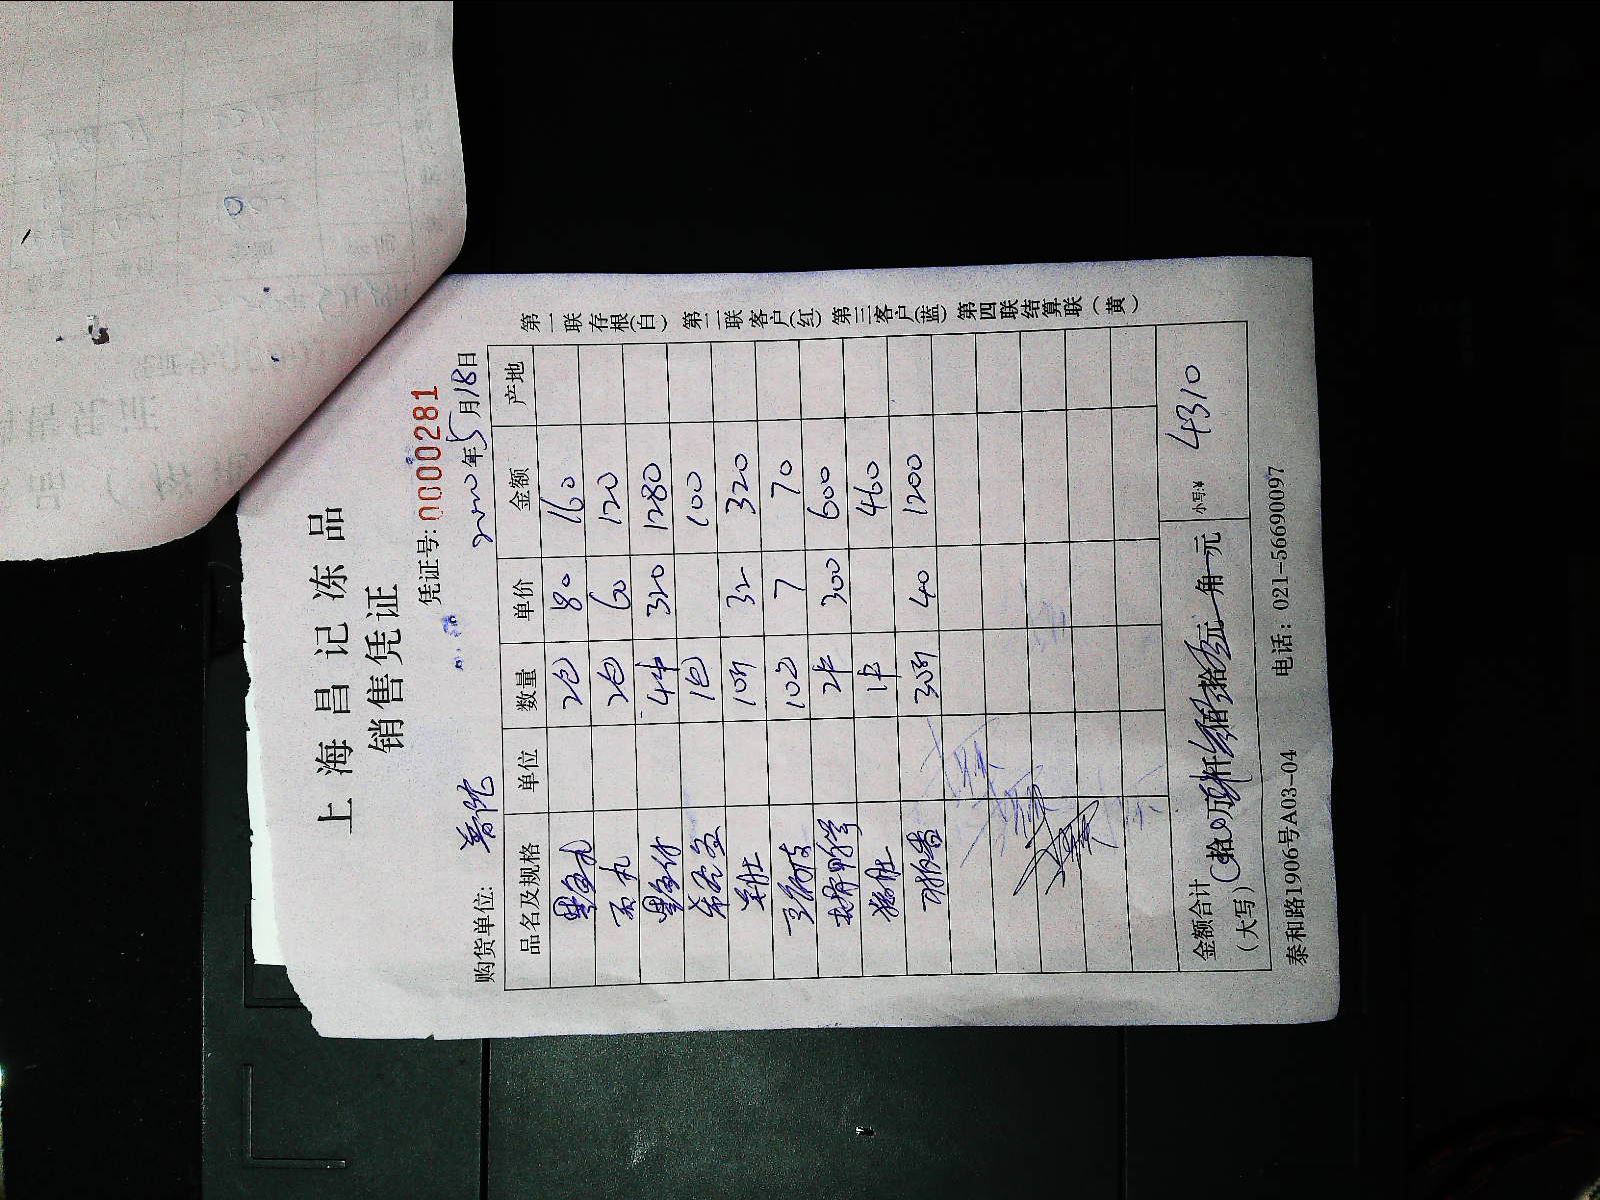 上海昌记冻品
销售凭证
凭证号: 0000281
购货单位: 普陀 2020年5月18日
品名及规格 单位 数量 单价 金额 产地
墨鱼丸 2包 80 160
2包 60 120
墨鱼仔 4件 320 1280
1包 100
羊肚 10斤 32 320
10包 7 70
2件 300 600
猪肚 1件 460
30斤 40 1200
金额合计
(大写) 拾 万 肆仟 叁佰 壹拾 元 角 元 小写:¥ 4310
泰和路1906号A03-04 电话: 021-56690097
第一联存根(白) 第二联客户(红) 第三客户(蓝) 第四联结算联(黄)